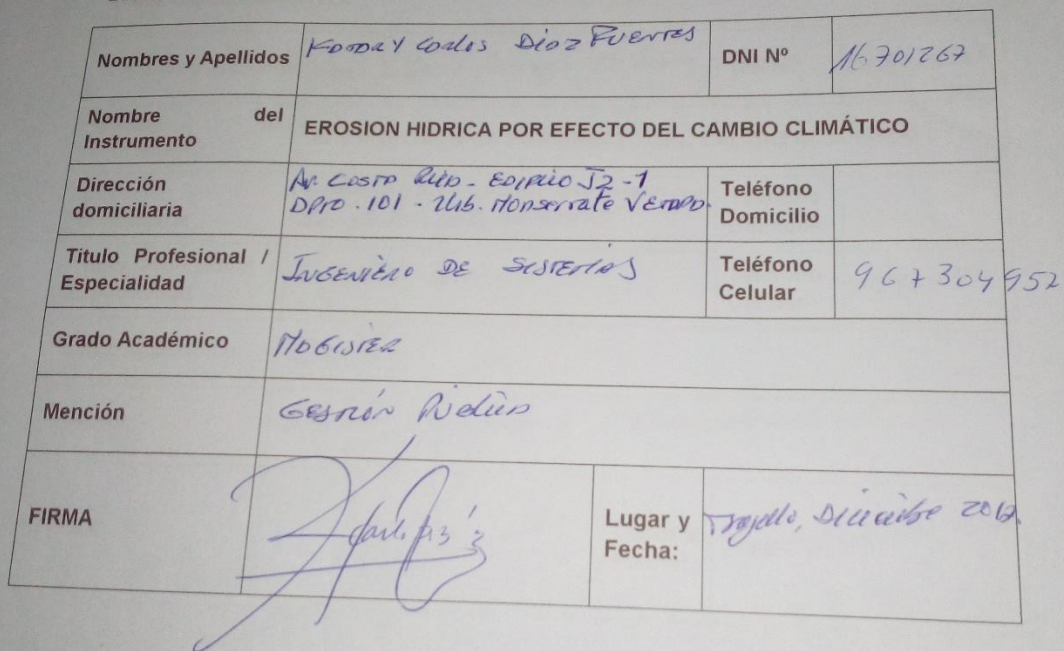 Nombres y Apellidos Carlos Díaz Fuentes DNI Nº 16701267
Nombre del
Instrumento
EROSION HIDRICA POR EFECTO DEL CAMBIO CLIMÁTICO
Dirección
domiciliaria
Av. Costa Rica - Edificio J2-1
DPTO. 101 - Urb. Monserrate
Teléfono
Domicilio
Titulo Profesional /
Especialidad
INGENIERO DE SISTEMAS
Teléfono
Celular
967304952
Grado Académico MAGISTER
Mención GESTIÓN PÚBLICA
FIRMA
Lugar y
Fecha:
Trujillo, Diciembre